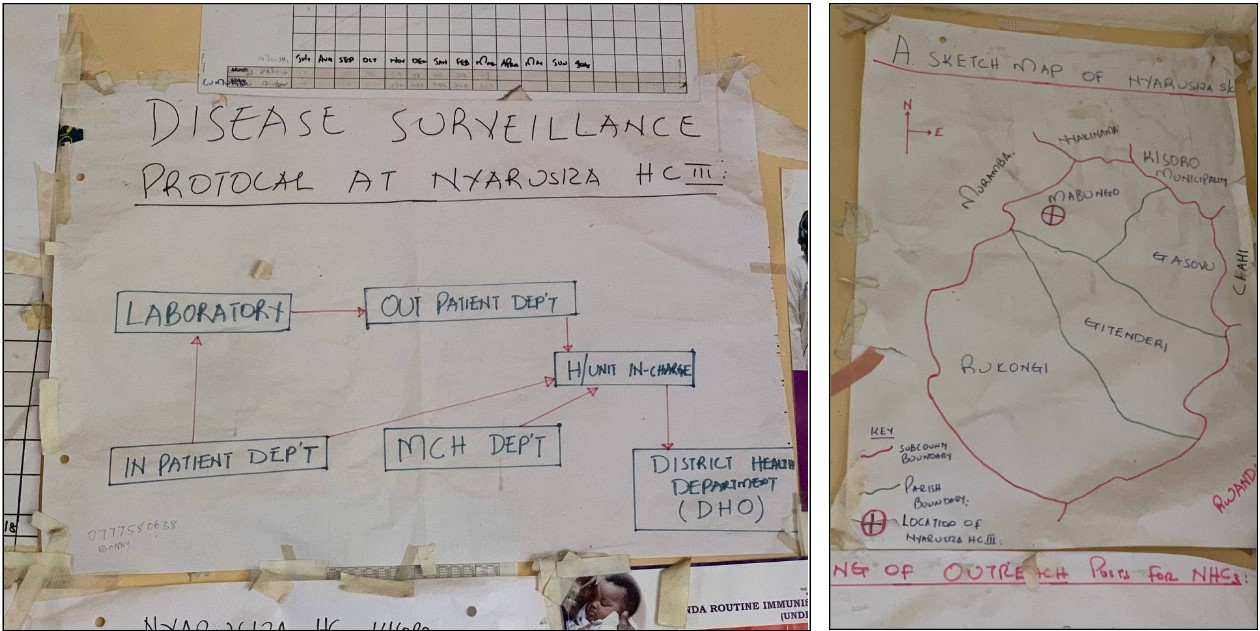 July Aug SEP OCT NOV DEC JAN FEB Mar APRIL MAI JUN July
DISEASE SURVEILLANCE
PROTOCAL AT NYARUSIZA HC III:
LABORATORY
OUT PATIENT DEP'T
H/UNIT IN-CHARGE
IN PATIENT DEP'T
MCH DEP'T
DISTRICT HEALTH
DEPARTMENT
(DHO)
0777580638
BONNY
18
NYARUSIZA HC KISORO
NDA ROUTINE IMMUNIS
(UNDI
A SKETCH MAP OF NYARUSIZA S/C
N
E
NYAKINAMA
KISORO
MUNICIPALITY
MURAMBA
MABUNGO
GASOVU
CHAHI
GITENDERI
RUKONGI
KEY
SUBCOUNTY
BOUNDARY
PARISH
BOUNDARY.
LOCATION OF
NYARUSIZA HC III.
RWAND
NG OF OUTREACH POSTS FOR NHCs: